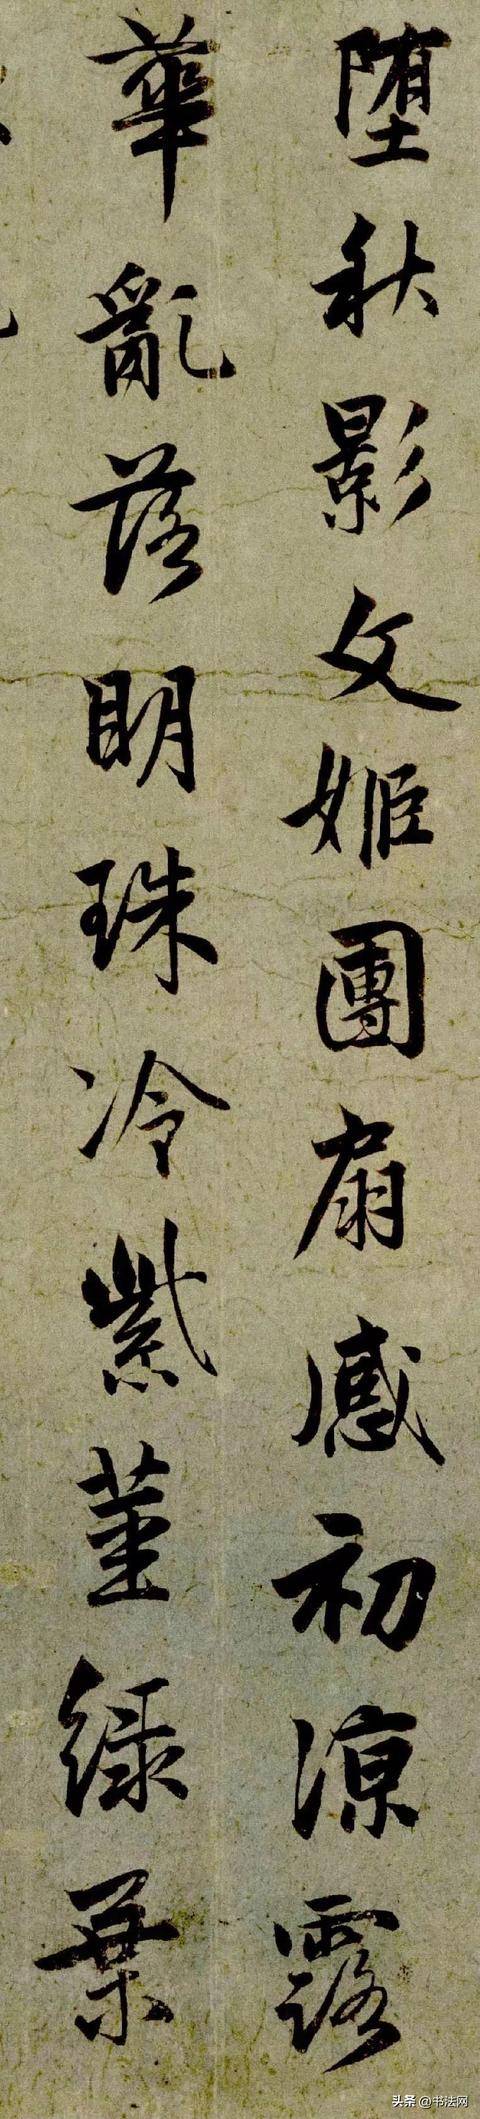 堕秋影文姬團扇感初涼露
華亂落明珠冷紫菫緑葉
头条 @书法网